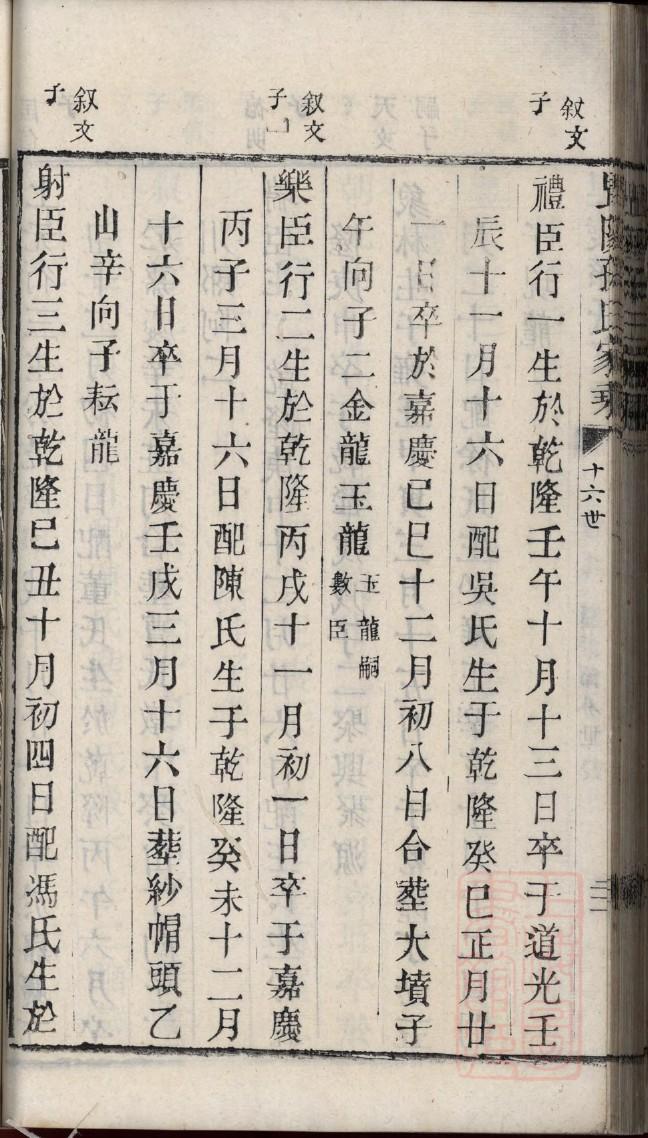 十六世
叙文
子
禮臣行一生於乾隆壬午十月十三日卒于道光壬
辰十一月十六日配吳氏生于乾隆癸巳正月廿
一日卒於嘉慶己巳十二月初八日合塟大墳子
午向子二金龍玉龍玉龍嗣
數臣
叙文
子
樂臣行二生於乾隆丙戌十一月初一日卒于嘉慶
丙子三月十六日配陳氏生于乾隆癸未十二月
十六日卒于嘉慶壬戌三月十六日塟紗帽頭乙
山辛向子耘龍
叙文
子
射臣行三生於乾隆己丑十月初四日配馮氏生於